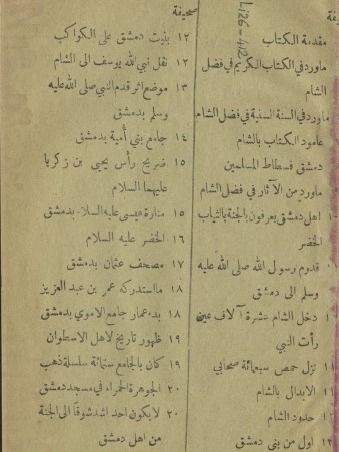 صحيفة
مقدمة الكتاب
ماورد في الكتاب الكريم في فضل
الشام
ماورد في السنة السنية في فضل الشام
عامود الكتاب بالشام
دمشق فسطاط المسلمين
ماورد من الآثار في فضل الشام
اهل دمشق يعرفون بالجنة بالثياب
الخضر
قدوم رسول الله صلى الله عليه
وسلم الى دمشق
دخل الشام عشرة آلاف عين
رأت النبي
نزل حمص سبعمائة صحابي
الابدال بالشام
حدود الشام
اول من بنى دمشق
صحيفة
١٢ بنيت دمشق على الكواكب
١٢ نقل نبي الله يوسف الى الشام
١٣ موضع اثر قدم النبي صلى الله عليه
وسلم بدمشق
١٤ جامع بني أمية بدمشق
١٥ ضريح رأس يحيى بن زكريا
عليهما السلام
١٥ منارة عيسى عليه السلام بدمشق
١٦ الخضر عليه السلام
١٧ مصحف عثمان بدمشق
١٨ مااستدركه عمر بن عبد العزيز
١٨ بدء عمار جامع الاموي بدمشق
١٩ ظهور تاريخ لاهل الاسطوان
١٩ كان بالجامع ستمائة سلسلة ذهب
٢٠ الجوهرة الحمراء في مسجد دمشق
٢٠ لا يكون احد اشد شوقا الى الجنة
من اهل دمشق